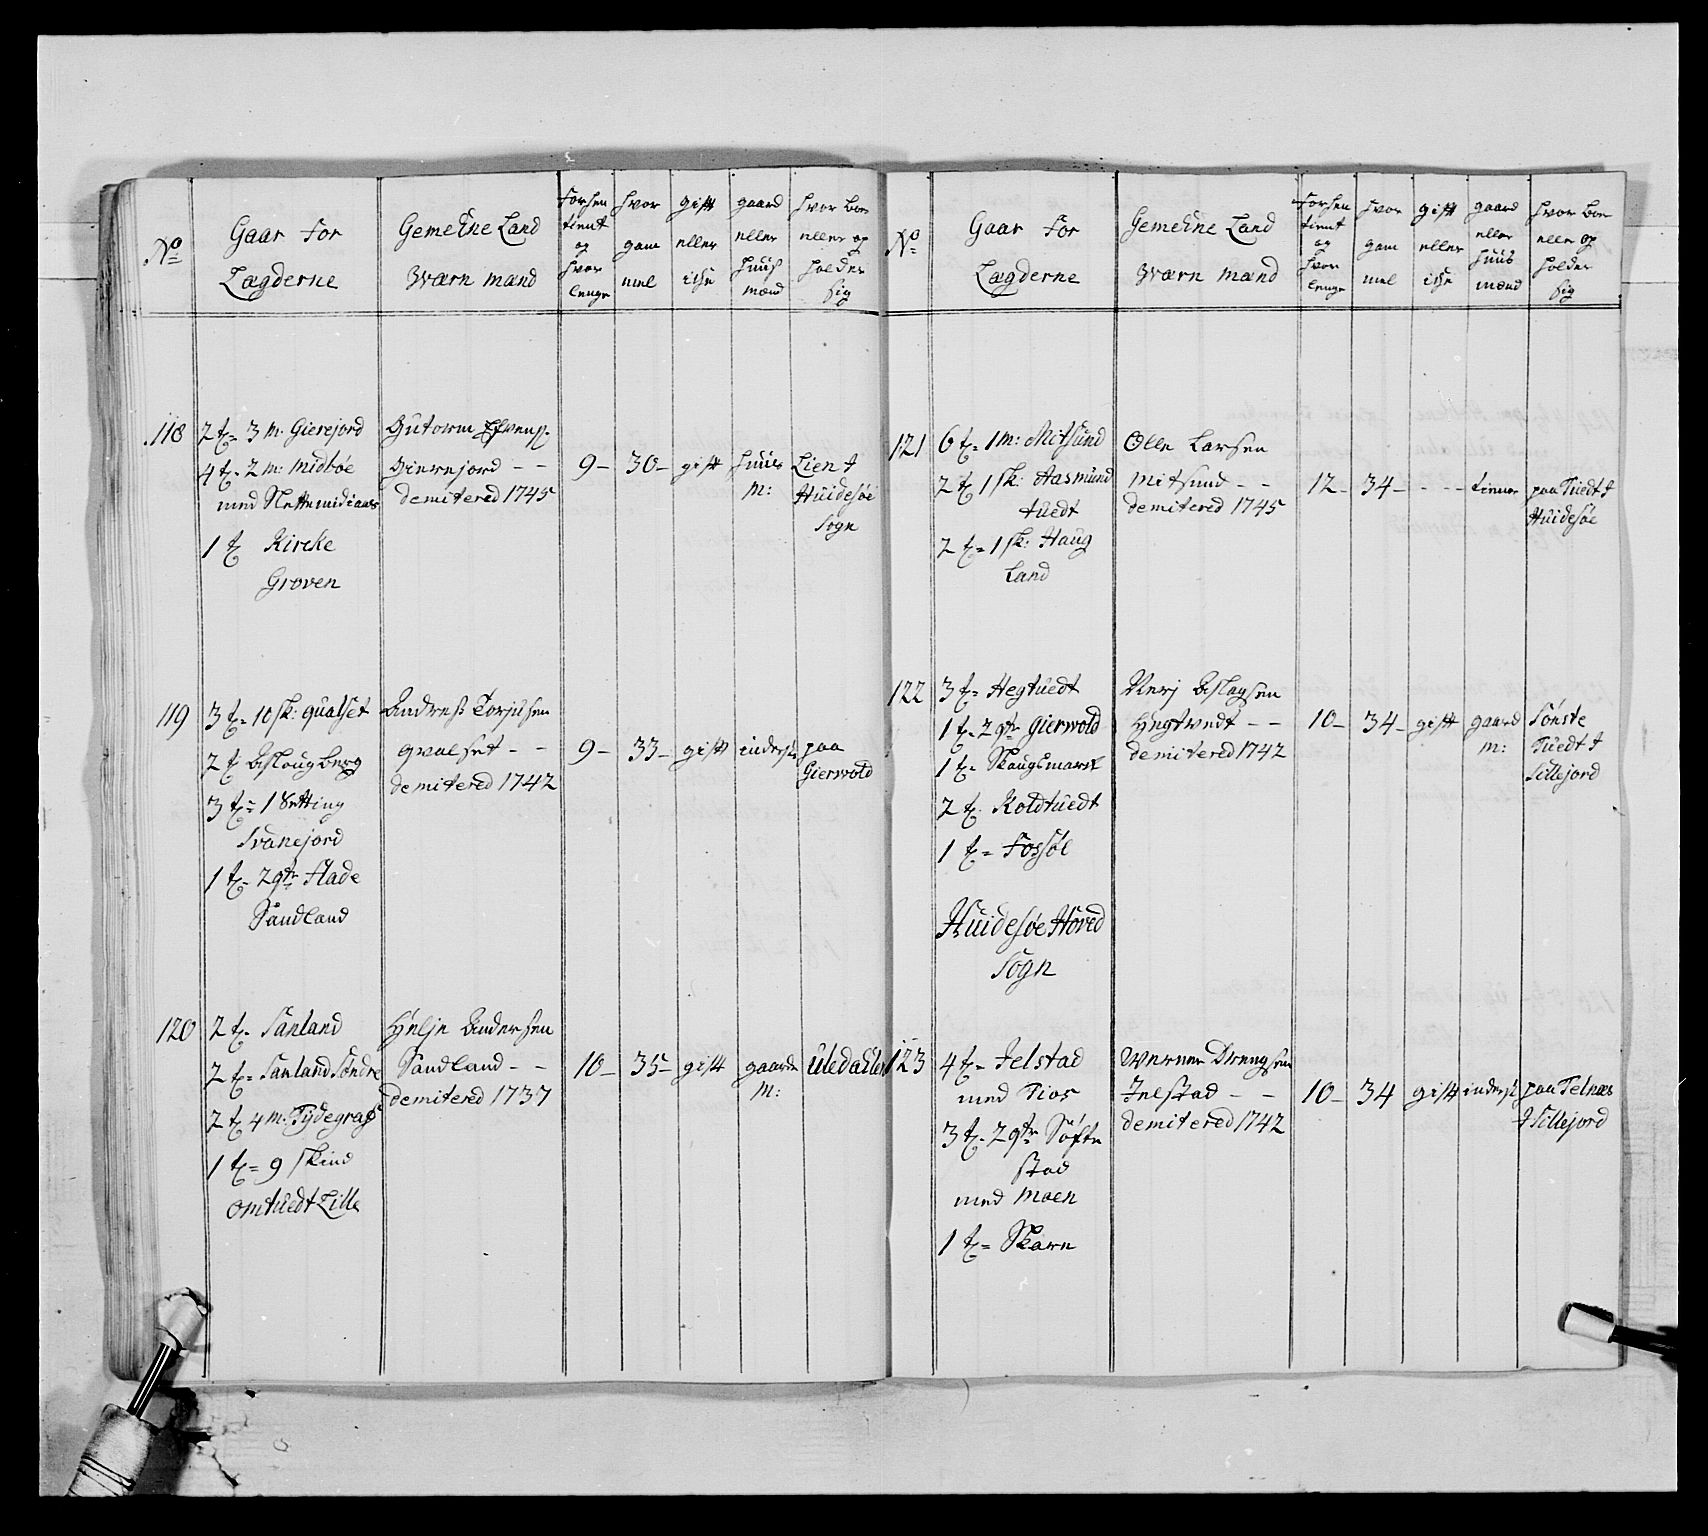 No
Gaar For
Lægderne
Gemene Land
Værn mænd
Forhen
tient
og
hvor
lenge
hvor
gam
mel
gift
eller
iche
gaard
eller
huus
mænd
hvor boe
eller op
holder
sig
118
2 t= 3 m: Gierejord
4 t= 2 m: midbøe
med
1 t Kircke
Groven
Gutorm
Gierrejord - -
demitered 1745
9 -
30 -
gift
huus
m:
Lien I
Huidesøe
Sogn
119
3 t= 10 sk: qualset
2 t Aslougberg
3 t= 1 Setting
Svanejord
1 t= 2 qtr Flade
Sandland
Andres Torjusen
qvalset - -
demitered 1742
9 -
33 -
gift
inderst
paa
Gierwold
120
2 t= Sanland
2 t= Sanland Søndre
2 t 4 m: Tydegraf
1 t= 9 skind
omtuedt Lille
Helje Andersen
Sandland - -
demitered 1737
10 -
35 -
gift
gaard
m:
No
Gaar For
Lægderne
Gemene Land
Værn mænd
Forhen
tient
og
hvor
lenge
hvor
gam
mel
gift
eller
iche
gaard
eller
huus
mænd
hvor boe
eller op
holder
sig
121
6 t= 1 m: Mitsund
2 t 1 sk: Aasmund
tuedt
2 t= 1 sk: Haug
Land
Olle Larsen
Mitsund - -
demitered 1745
12 -
34 -
- - -
tienner
paa Tuedt I
Huidesøe
122
3 t= Hegtuedt
1 t= 2 qtr Gierwold
1 t= Skougsmarck
2 t= Koldtuedt
1 t= Fossøe
Nerj Aslagsen
Hegtvedt - -
demitered 1742
10 -
34 -
gift
gaard
m:
Sønste
Tuedt I
Sillejord
Huidesøe Hoved
Sogn
123
4 t= Jelstad
med Rios
3 t= 2 qtr Søfte
stad
med Moen
1 t= Skare
Werner Drengsen
Jelstad - -
demitered 1742
10 -
34
gift
inderst
paa Telnæs
I Sillejord